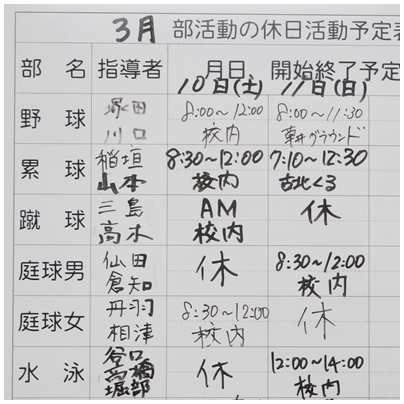 3月 部活動の休日活動予定表
部 名 指導者 月日 開始終了予定
10日(土) 11日(日)
野 球 塚田 8:00~12:00 8:00~11:30
川口 校内 グラウンド
累 球 稲垣 8:30~12:00 7:10~12:30
山本 校内 古北くる
蹴 球 三島 AM 休
高木 校内
庭球男 仙田 休 8:30~12:00
倉知 校内
庭球女 丹羽 8:30~12:00 休
相津 校内
水 泳 谷口 休 12:00~14:00
高橋 校内
堀部